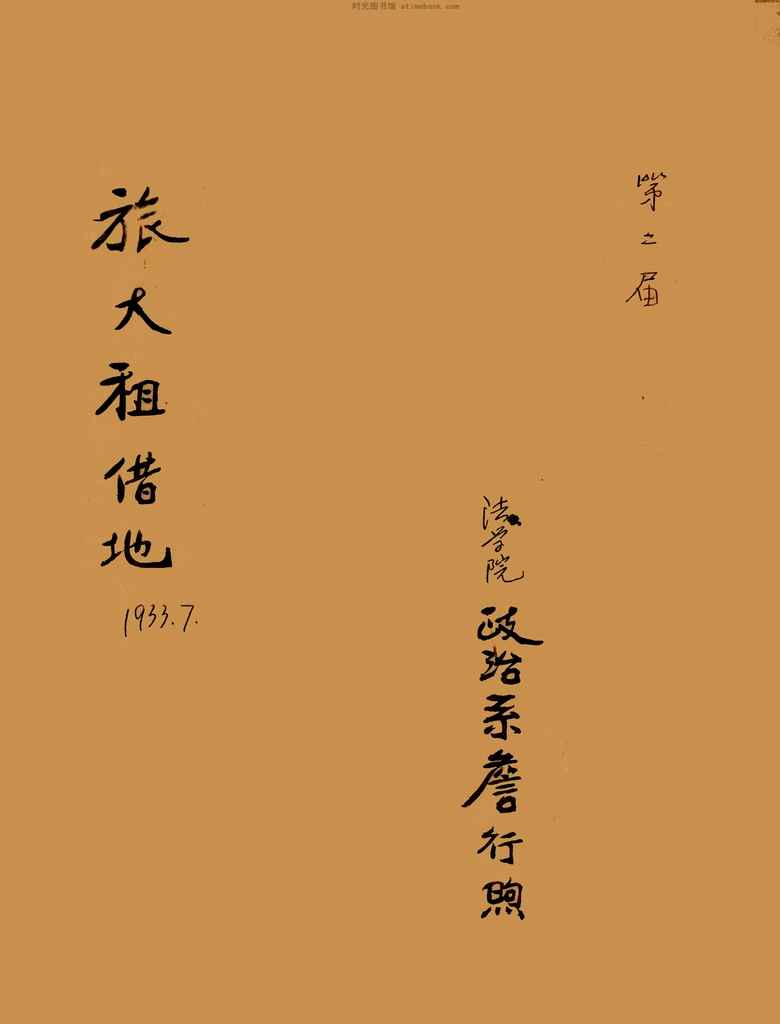 时光图书馆 atimebook.com
第二届
法学院
政治系詹行煦
旅大租借地
1933.7.